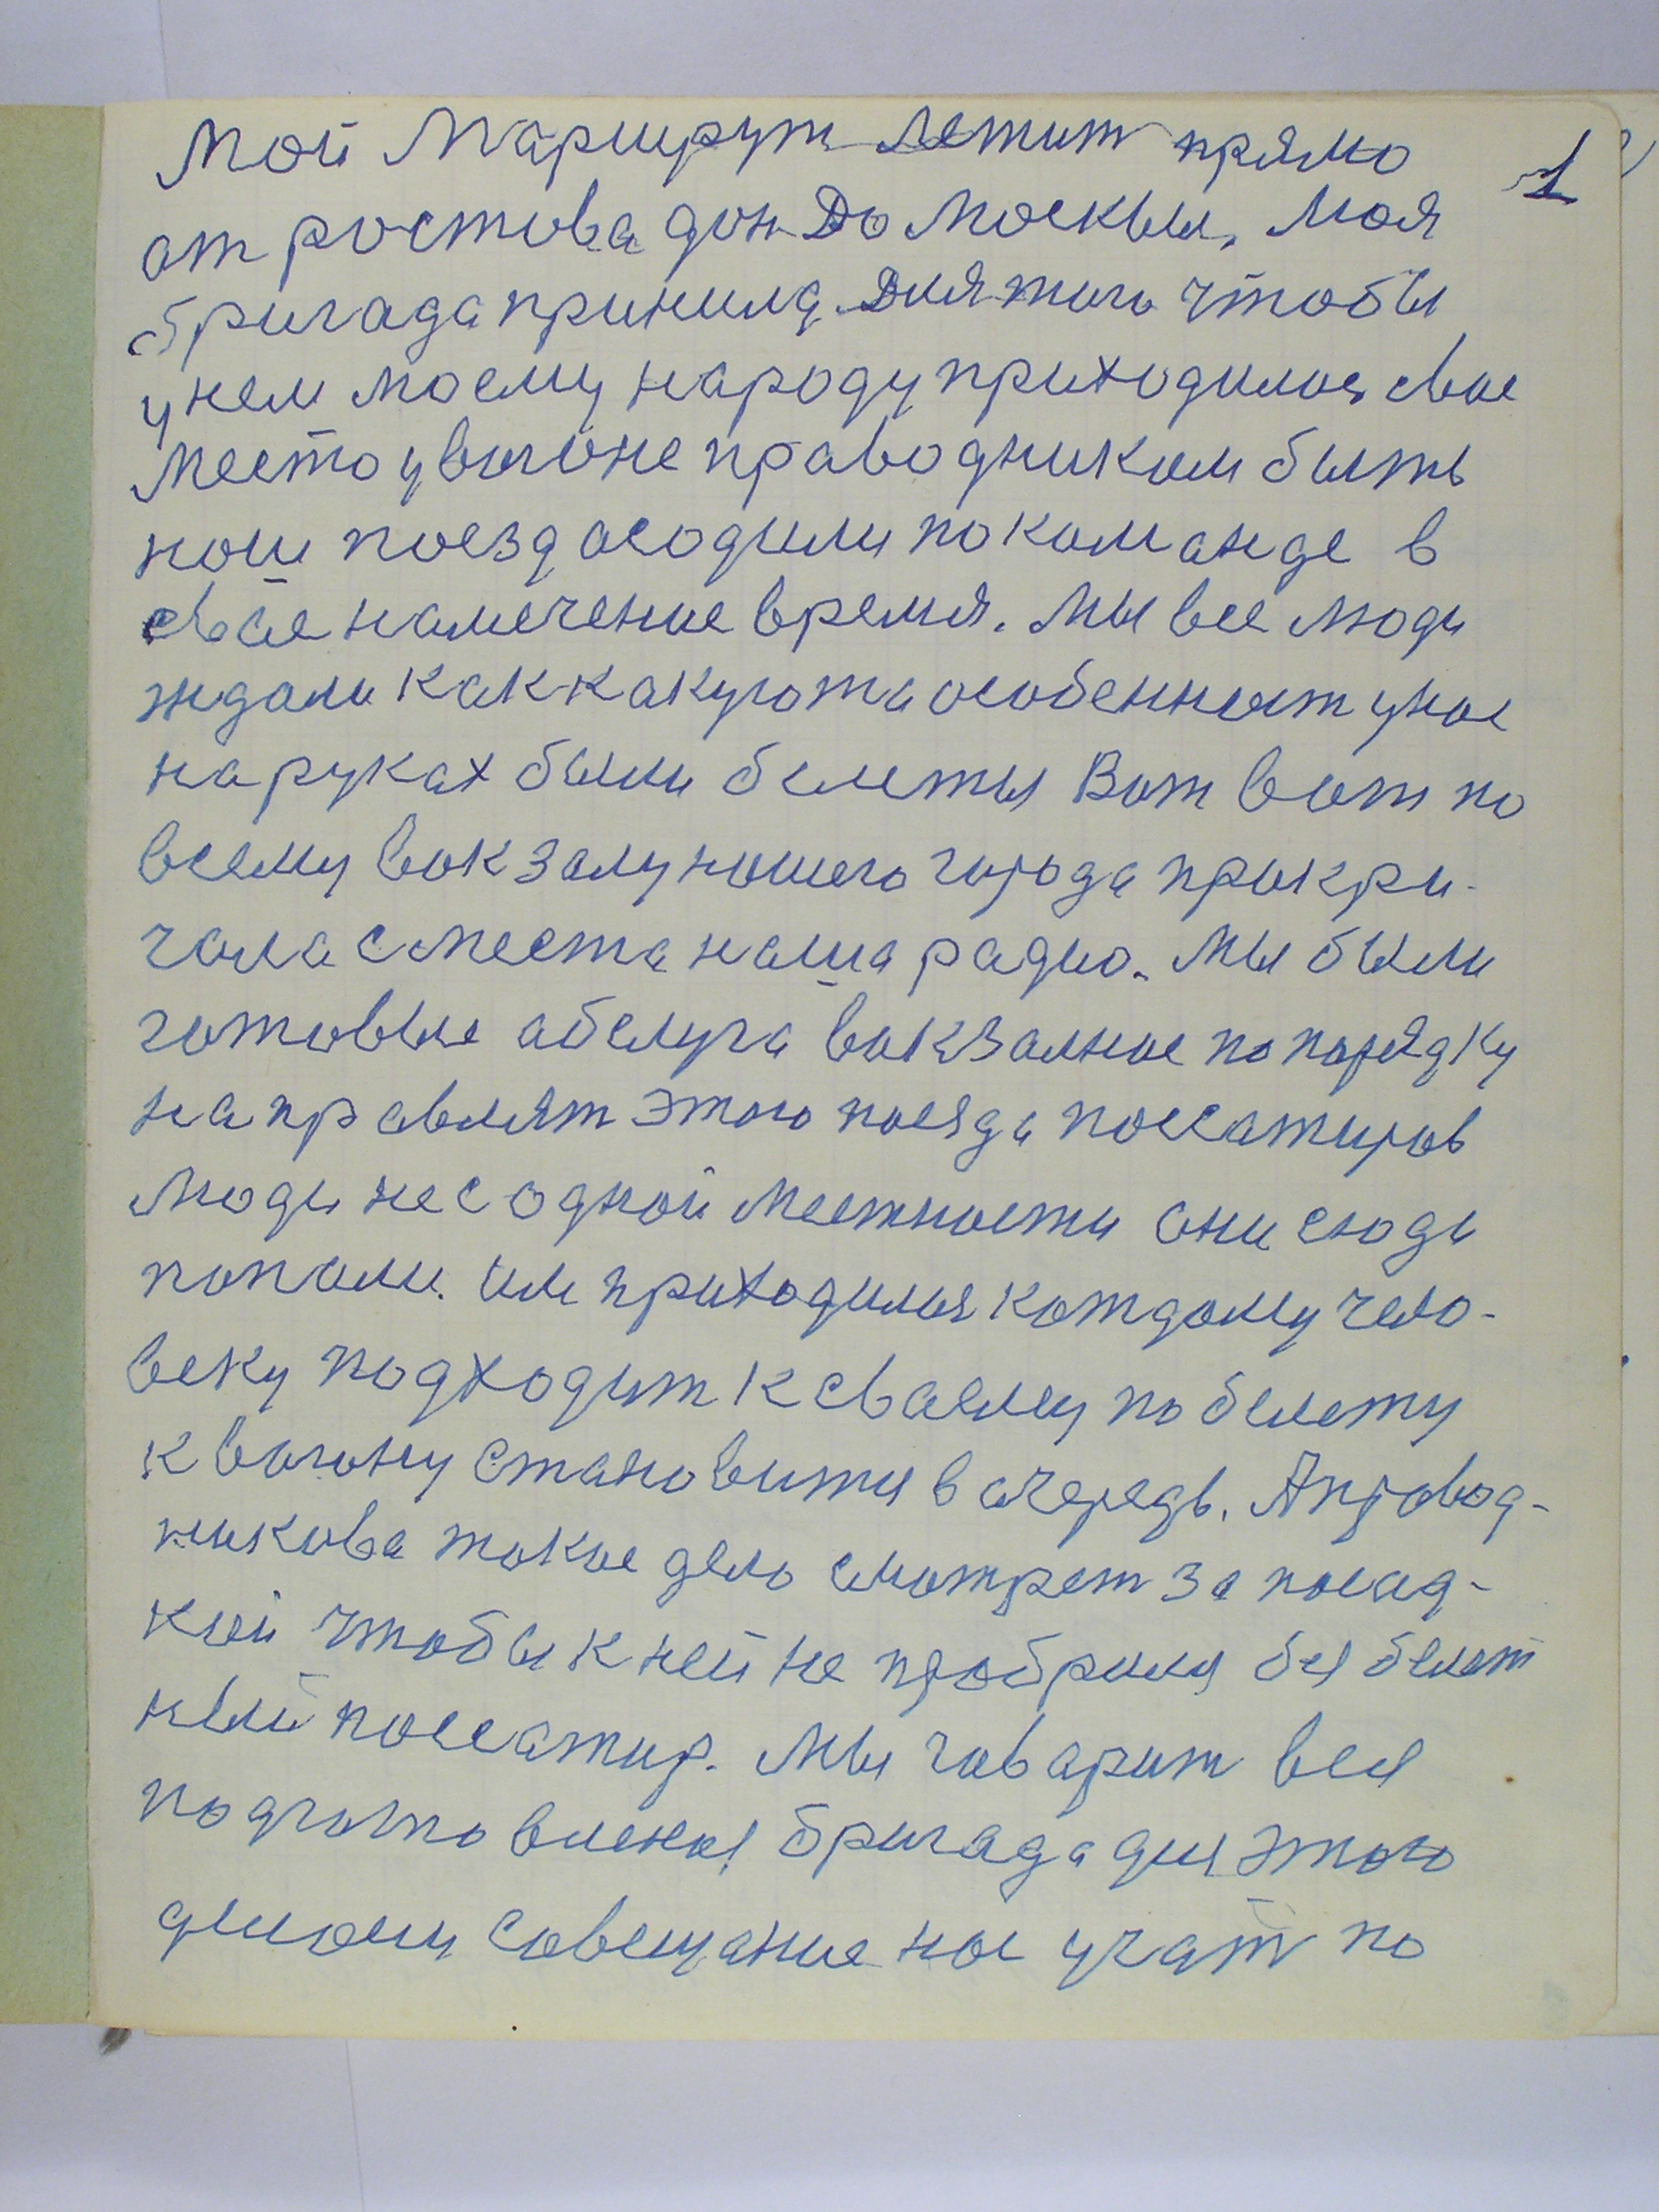 Мой Маршрут летит прямо
1
от ростова дон До Москвы. Моя
бригада принила Для того чтобы
у нем моему народу приходилося свое
место у вагоне праводником быть
нош поезд осодили по команде в
свое намечение время. Мы все люди
ждали как какуюто особенност у нас
на руках были билеты Вот вот по
всему вокзалу нашего города прикри-
чала с места наша радио. Мы были
готовые абслуга вакзалное по порядку
направлят этого поезда поссатиров
Люди не с одной местности они сюда
попали. им приходилося каждому чело-
веку подходит к сваему по билету
к вагону становится в очередь. Аправод-
никова такое дело смотрет за посад-
кой чтобы к ней не пробрился без билет
ный поссажир. Мы говарит вся
подготовленая бригада для этого
делаем совещание нас учат по